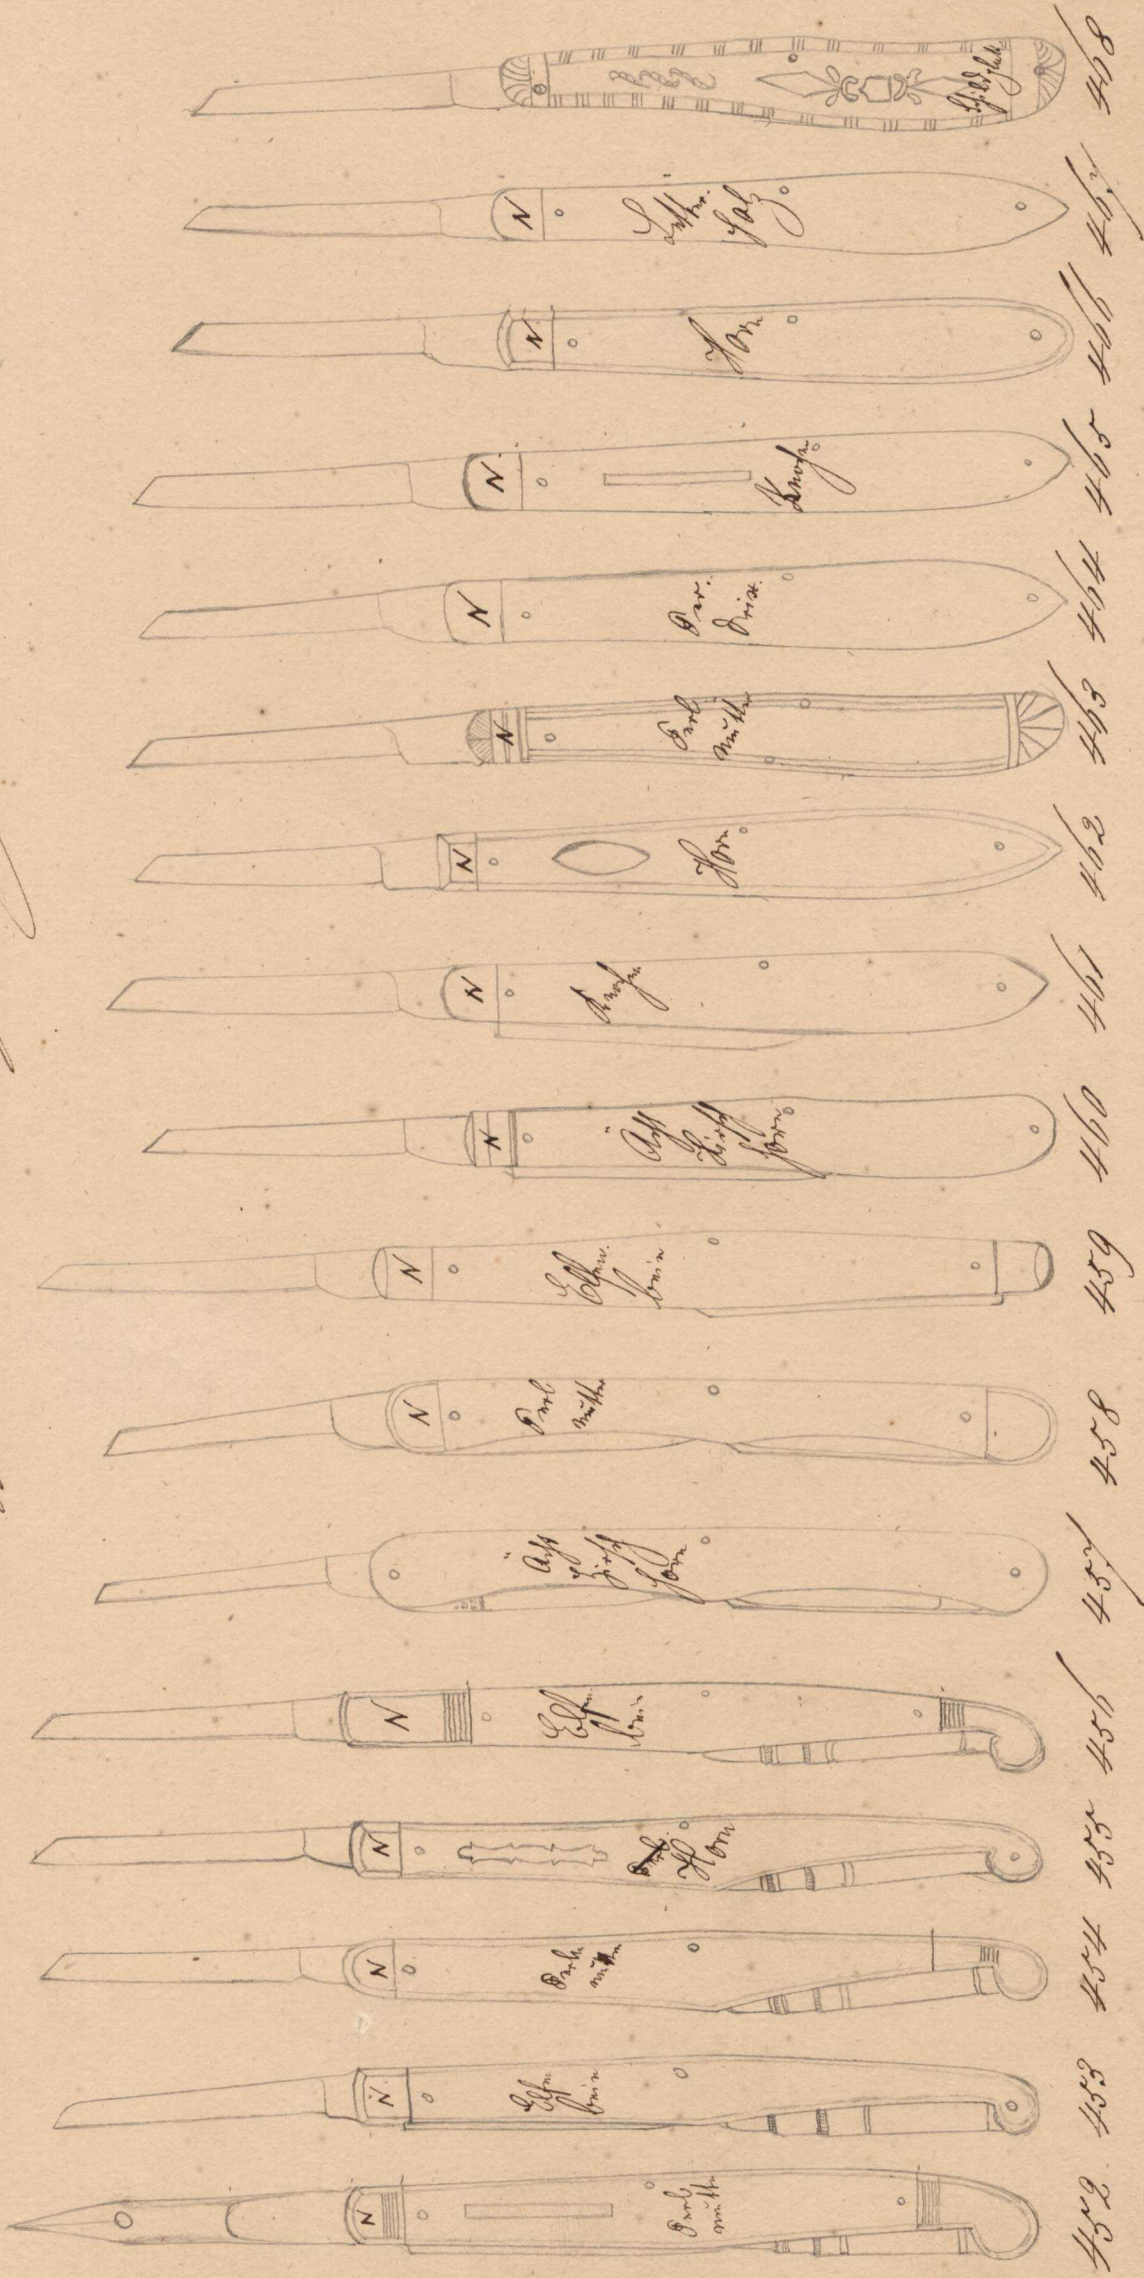 N
Perl
mutter
452
N
Elfen
bein
453
N
Perl
mutter
454
N
Horn
455
N
Elfen
bein
456
Ächt
Hirsch
horn
457
N
Perl
mutter
458
N
Elfen
bein
459
N
Ächt
Hirsch
horn
460
N
Knochen
461
N
Horn
462
N
Perl
mutter
463
N
Per.
drix.
464
N
Knochen
465
N
Horn
466
N
Letter.
holz
467
Schildplatt
468